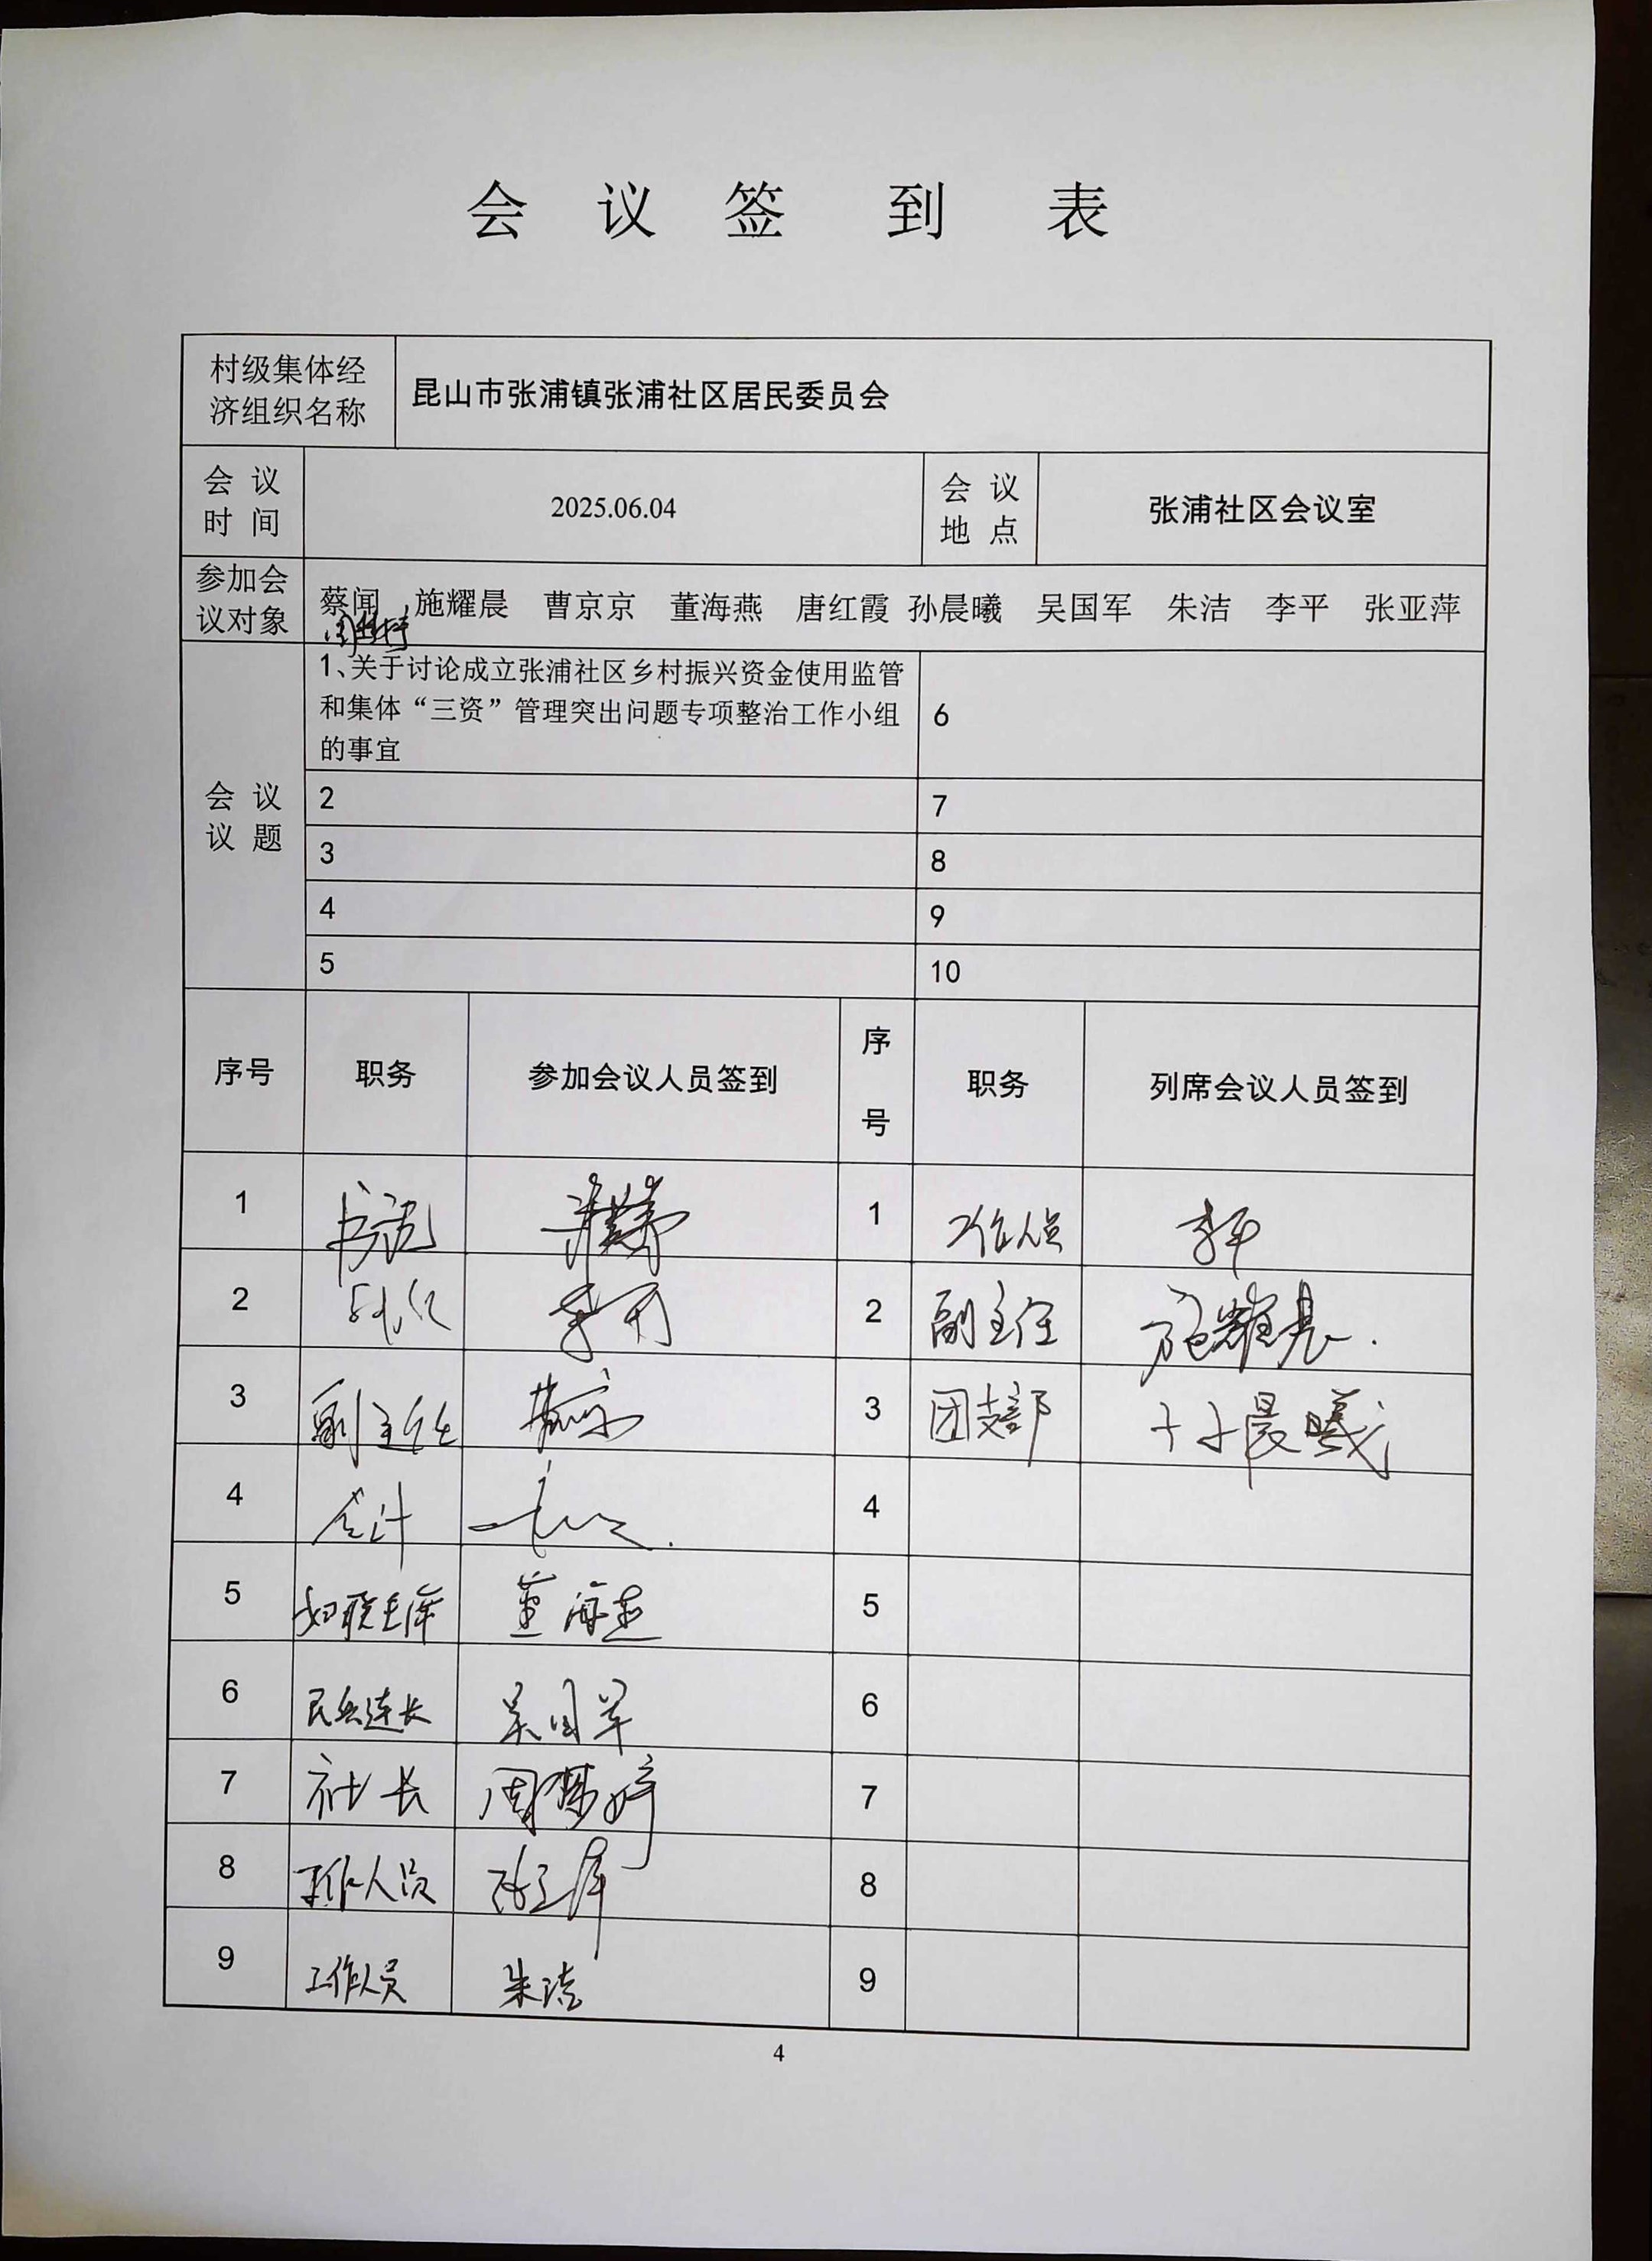 会 议 签 到 表
村级集体经
济组织名称
昆山市张浦镇张浦社区居民委员会
会 议
时 间
2025.06.04
会 议
地 点
张浦社区会议室
参加会
议对象
蔡闻 施耀晨 曹京京 董海燕 唐红霞 孙晨曦 吴国军 朱洁 李平 张亚萍
会 议
议 题
1、关于讨论成立张浦社区乡村振兴资金使用监管
和集体“三资”管理突出问题专项整治工作小组
的事宜
6
2
7
3
8
4
9
5
10
序号
职务
参加会议人员签到
序
号
职务
列席会议人员签到
1 书记
1 工作人员 李平
2
2 副主任 施耀晨
3 副主任
3 团支部 孙晨曦
4 会计
4
5 妇联主席 董海燕
5
6 民兵连长 吴国军
6
7 社长 周梦婷
7
8 工作人员
8
9 工作人员 朱洁
9
4